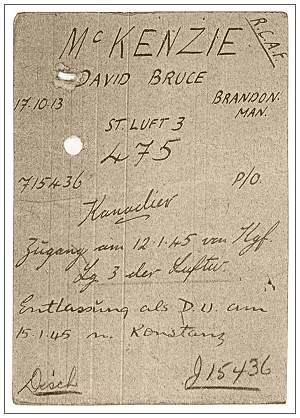 R.C.A.F.
McKENZIE
DAVID BRUCE
17.10.13 BRANDON.
MAN.
ST. LUFT 3
475
715436 P/O.
Kanadier
Zugang am 12.1.45 von Kgf.
Lg 3 der Luftw.
Entlassung als D.U. am
15.1.45 n. Konstanz
Disch J15436